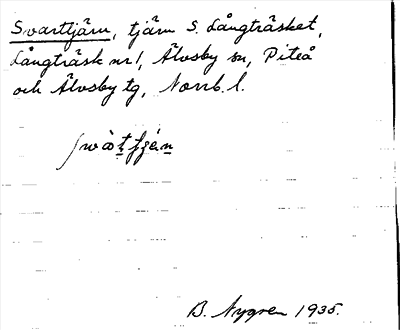 Svarttjärn, tjärn S. Långträsket,
Långträsk nr 1, Älvsby sn, Piteå
och Älvsby tg, Norrb. l.
B. Nygren 1935.